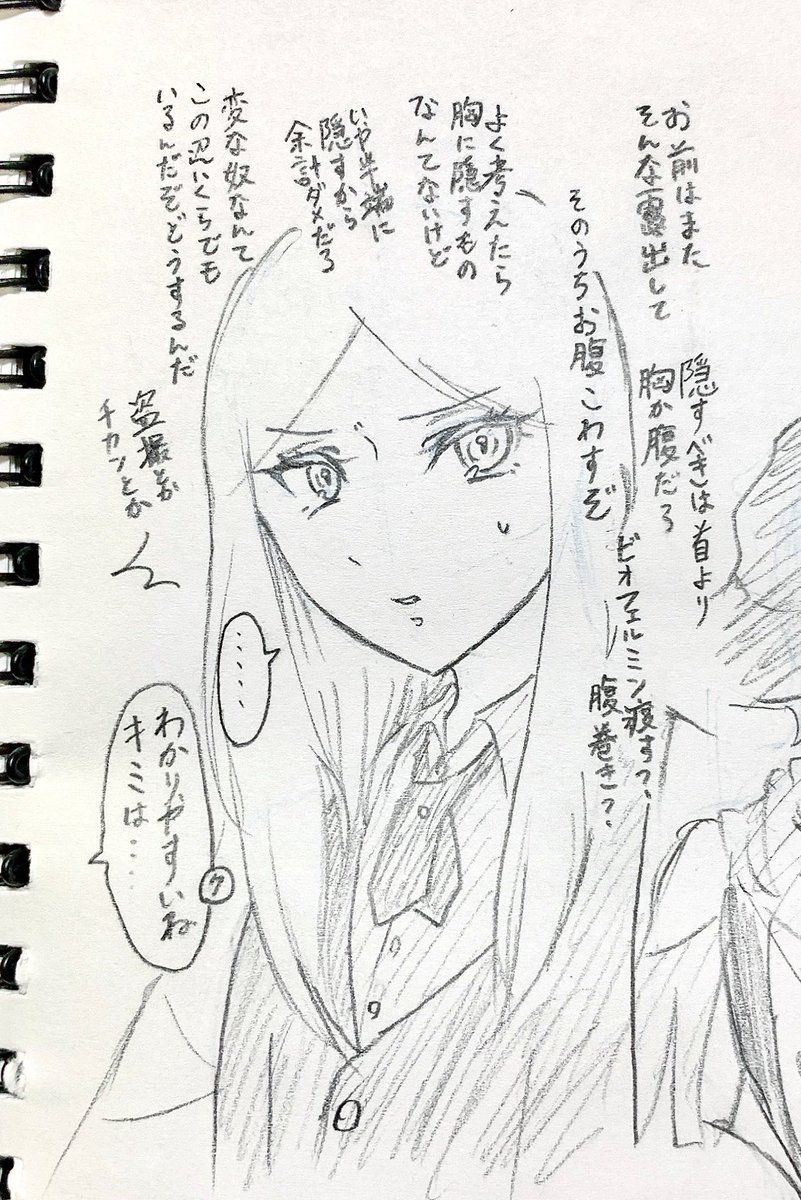 お前はまた
そんな露出して
隠すべきは首より
胸か腹だろ
そのうちお腹こわすぞ
ビオフェルミン寝す?、
腹巻き?
よく考えたら
胸に隠すもの
なんてないけど
いや半端に
隠すから
余計ダメだろ
変な奴なんて
この辺いくらでも
いるんだぞどうするんだ
盗撮とか
チカンとか
……
わかりやすいね
キミは……